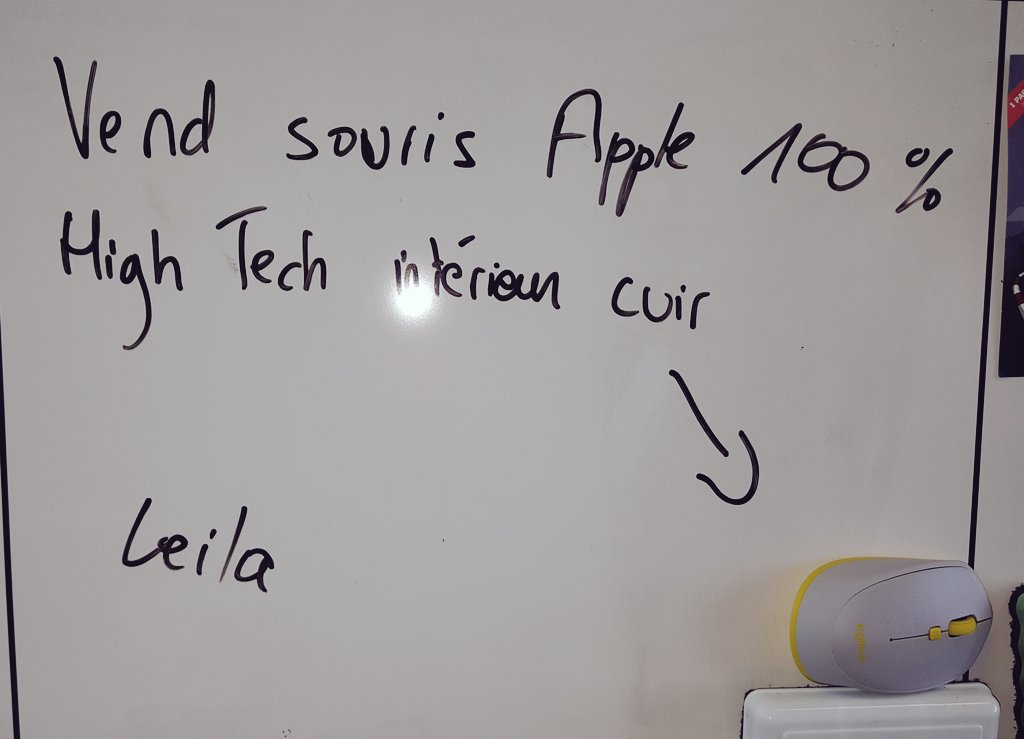 Vend souris Apple 100 %
High Tech intérieur cuir
Leila
logitech
1 PA